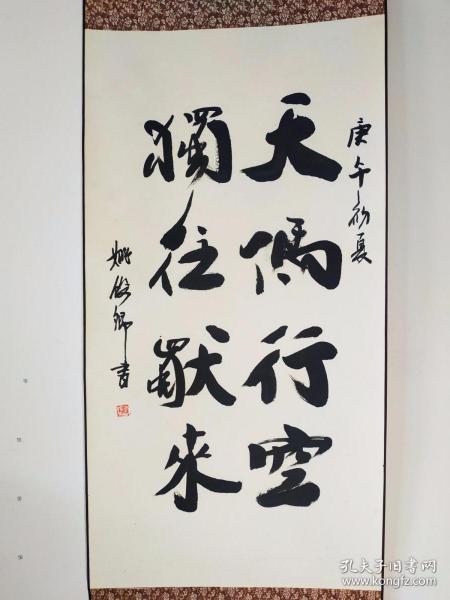 庚午初夏
天馬行空
獨往獨來
姚俊卿書
孔夫子旧书网
www.kongfz.com